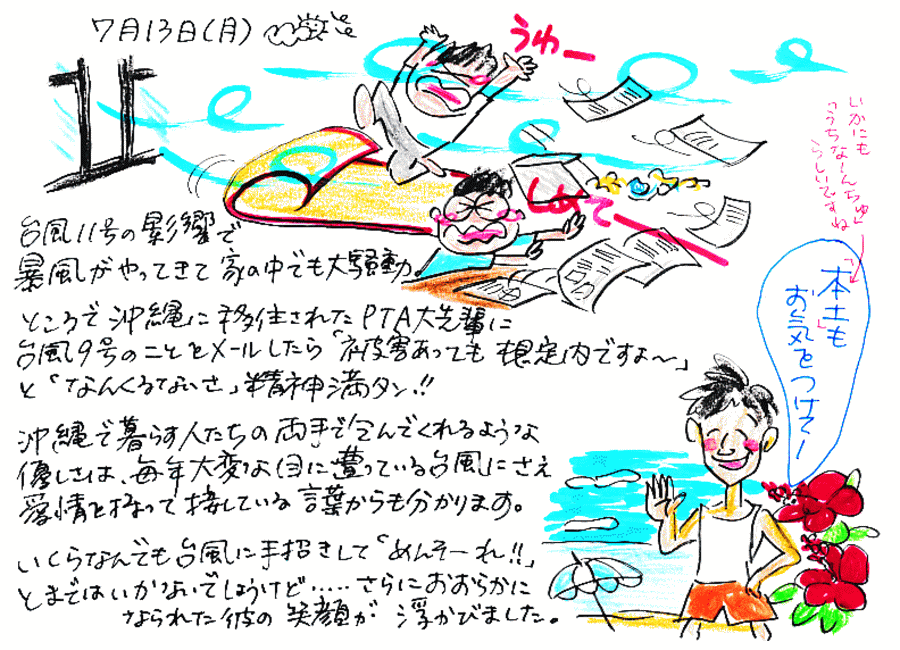 7月13日(月)
うわー
台風11号の影響で
暴風がやってきて家の中でも大騒動。
ところで沖縄に移住されたPTA大先輩に
台風9号のことをメールしたら「被害あっても想定内ですよ〜」
と「なんくるないさ」精神満タン!!
沖縄で暮らす人たちの両手で包んでくれるような
優しさは、毎年大変な目に遭っている台風にさえ
愛情を持って接している言葉からも分かります。
いくらなんでも台風に手招きして「めんそーれ!!」
とまではいかないでしょうけど……さらにおおらかに
なられた彼の笑顔が浮かびました。
いかにも
「うちなーんちゅ」
らしいですね
「本土」も
お気をつけてー